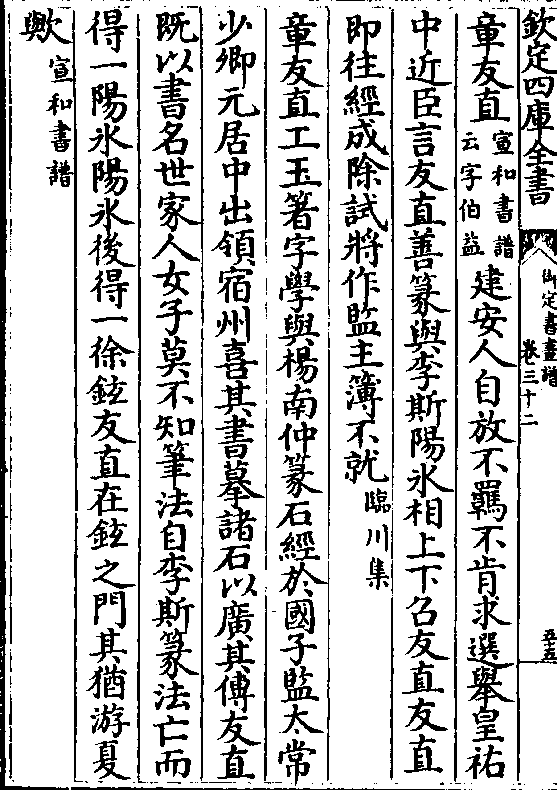 欽定四庫全書
御定書畫譜
卷三十二
五十五
童友直宣和書譜云字伯益建安人自放不羈不肯求選舉皇祐
中近臣言友直善篆與李斯陽氷相上下召友直友直
即往經成除試將作監主簿不就臨川集
章友直工玉箸字學與楊南仲篆石經於國子監太常
少卿元居中出領宿州喜其書摹諸石以廣其傳友直
既以書名世家人女子莫不知筆法自李斯篆法亡而
得一陽氷陽氷後得一徐鉉友直在鉉之門其猶游夏
歟宣和書譜